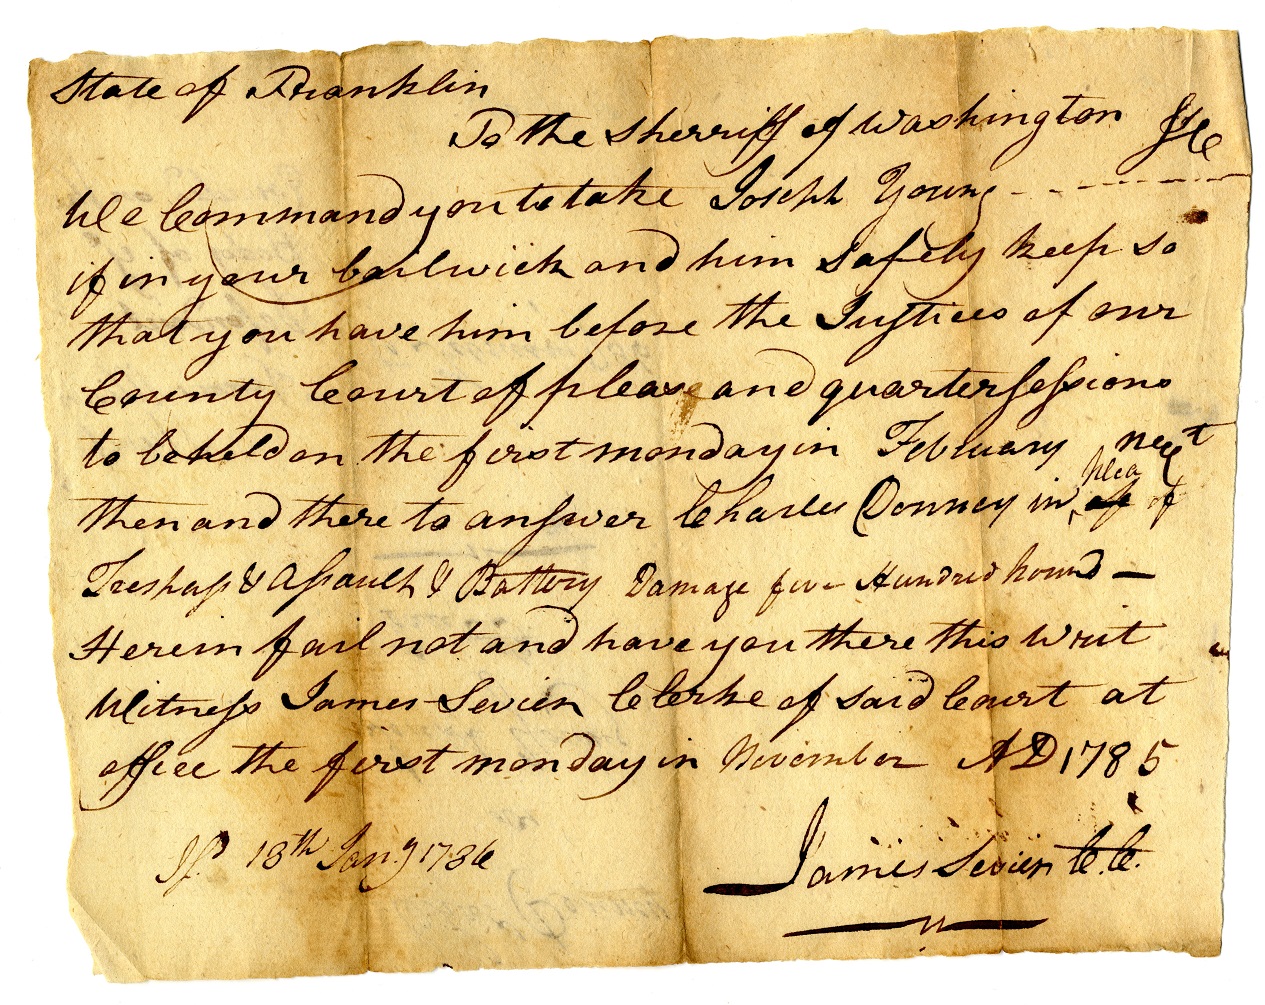 State of Franklin
To the Sherriff of Washington
We Command you to take Joseph Young
if in your bailwick and him safely keep so
that you have him before the Justices of our
County Court of pleas and quartersessions
to beheld on the first monday in February next
then and there to answer Charles Donney in plea of
Treshass & Assault & Battery Damage five Hundred Pound —
Herein fail not and have you there this Writ
Witness James Sevier Clerke of said Court at
office the first monday in November AD 1785
18th Jany 1786
James Sevier C.C.